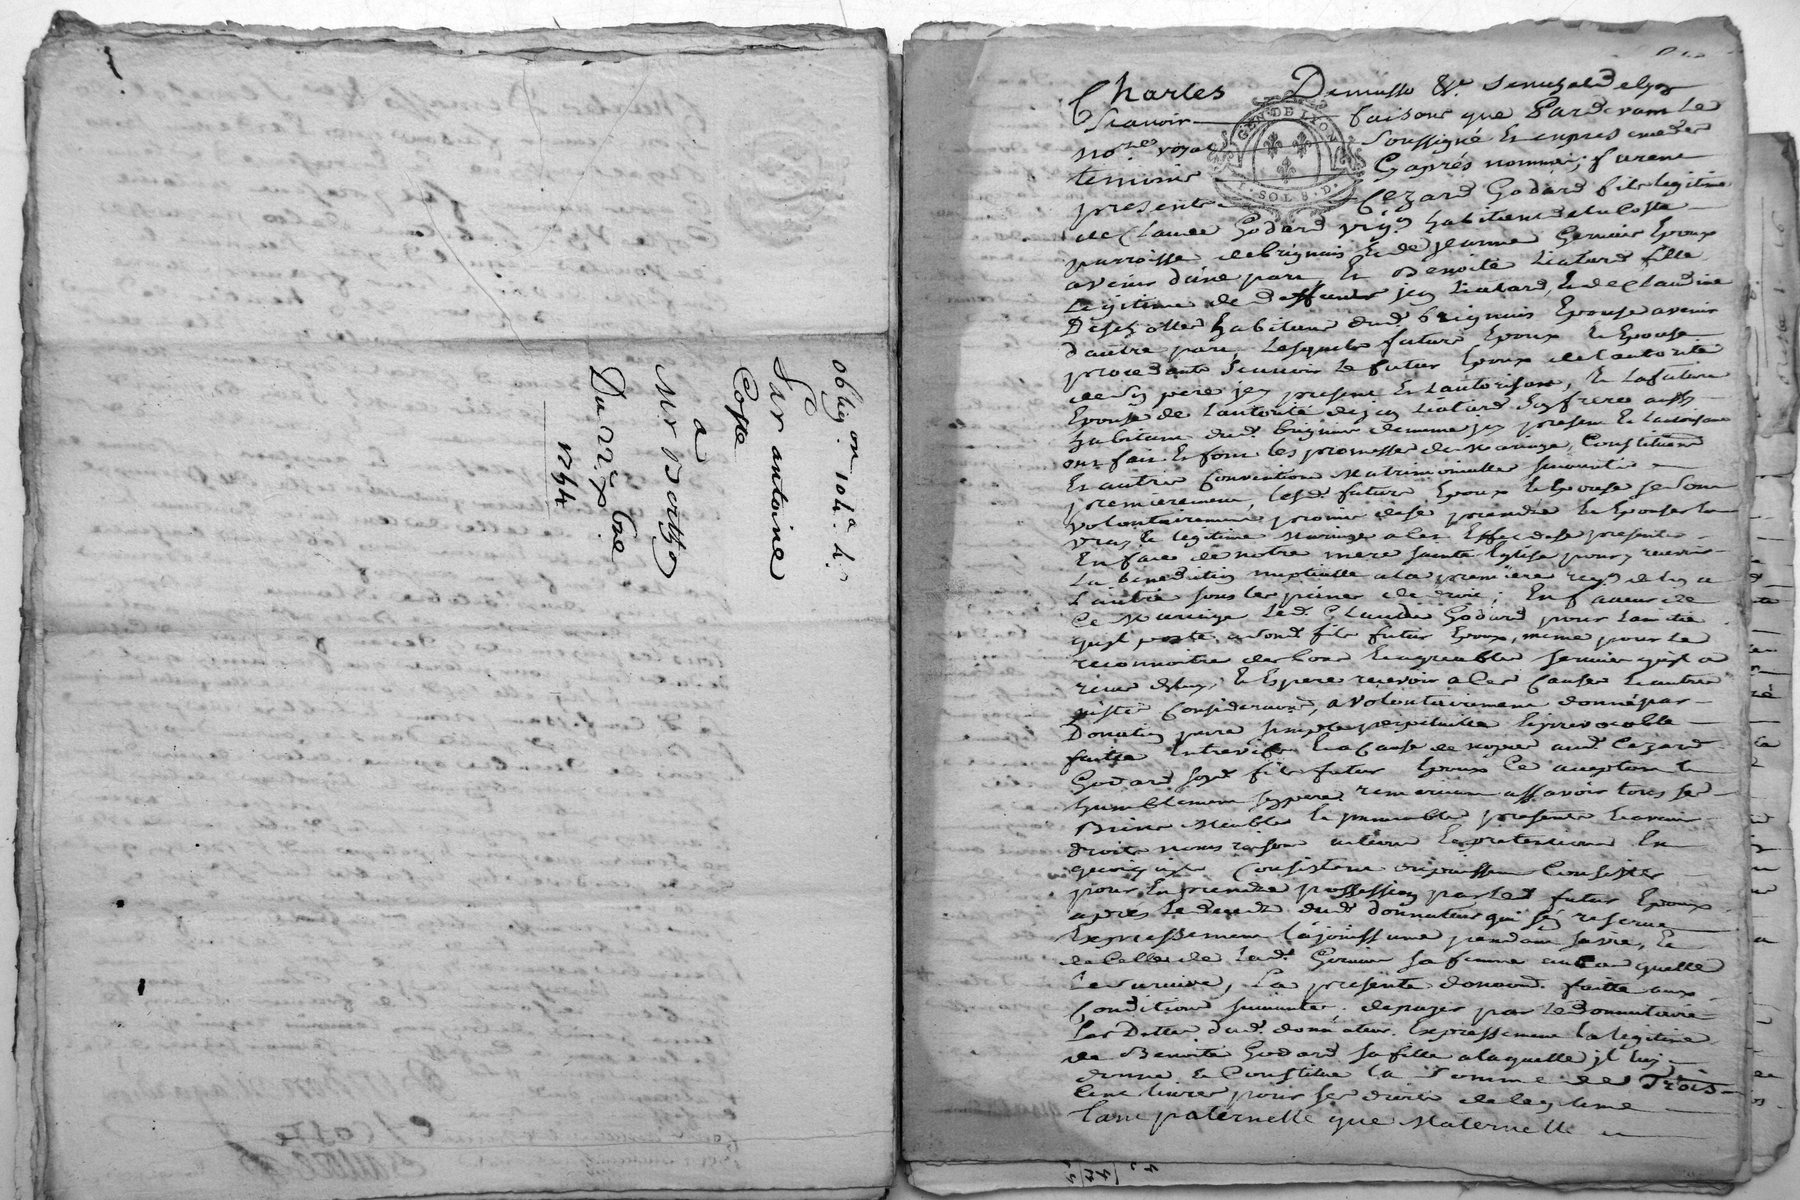 oblig.on 104# 4s
Sr antoine
Coste
a
Mr
Du 22 xbre
1744
GEN. DE LYON
1. SOL 8. D.
Charles Demasso &a. Seneschal de lyon
Scavoir faisons que Pardevant Le
no.re royal Soussigné Et en presence des
temoins Cy aprés nommés, furent
presents Cezard Godard fils legitime
de Claude Godard vign habitient de la Coste
parroisse de brignais Et de jeanne Epoux
avenir d'une part, Et Benoite Liatard fille
Legitime de deffunt jean Liatard, Et de Claudine
habitante dud. brignais Epouse avenir
d'autre part, Lesquels futurs Epoux Et Epouse
procedants Scavoir Le futur Epoux de l'autorité
de son pere icy present Et L'autorisant, Et La future
Epouse de L'autorité de jean Liatard son frere aussy
habitant dud. brignais de meme icy present Et L'autorisant
ont fait Et font les promesses de Mariage, Constitutions
Et autres Conventions Matrimonialles Suivantes
premierement, Lesd. futurs Epoux Et Epouse se sont
volontairement promis de se prendre Et Epouser En
vray Et legitime Mariage a Les Effet de se presenter
En face de notre mere Sainte Eglise pour y recevoir
La benediction nuptialle a la premiere req.on de lun a
L'autre sous les peines de droit; En faveur de
Ce Mariage Led. Claude Godard pour L'amitié
quil porte aud. fils futur Epoux, meme pour Le
reconnoitre des bons Et agreables services quil a
receu de luy, Et Espere recevoir a Les Causes Et autres
justes Considerations, a volontairement donné par
Donation pure simple perpetuelle Et irrevocable
faitte Entrevifs Et a Cause de noces aud. Cezard
Godard sond. fils futur Epoux Ce acceptant Et
humblement son pere remerciant assavoir tous ses
Biens Meubles Et jmmeubles presents Et avenir
droits noms raisons actions Et pretentions En
quoy quils Consistent ou puissent Consister
pour En prendre possession par led. futur Epoux
aprés Le deceds dud. donnateur qui s'en reserve
Expressement la jouissance pendant sa vie, Et
de Celle de lad. sa femme au Cas quelle
Le survive, La presente donaon. faitte aux
Conditions suivantes, de payer par Le donnataire
Les Dettes dud. donnateur. Expressement la legitime
de Benoite Godard sa fille a laquelle jl luy
donne Et Constitue la Somme de Trois
Cent livres pour ses droits de legitime
tant paternelle que Maternelle